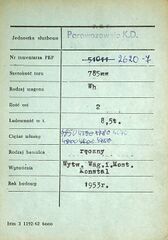 Jednostka służbowa Parowozownia K.D.
Nr inwentarza PKP 51011 2620-7
Szerokość toru 785mm
Rodzaj wagonu Wh
Ilość osi 2
Ładowność w t. 8,5t.
Ciężar własny
4800 4200 4020
Rodzaj hamulca ręczny
Wytwórnia Wytw. Wag. i Most.
Konstal
Rok budowy 1953r.